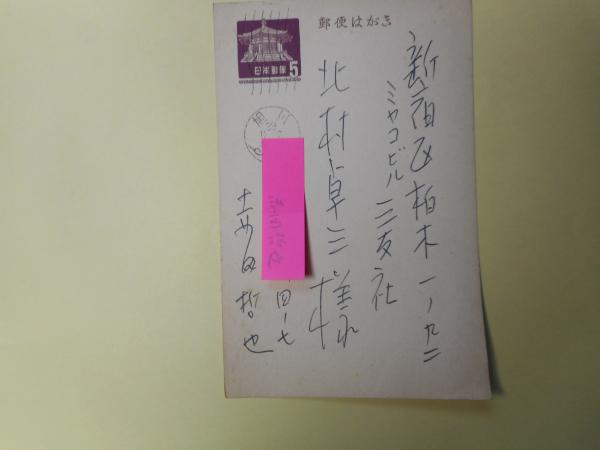 郵便はがき
日本郵便
5
新宿区柏木一ノ九二
ミヤコビル三友社
北村卓三様
四ー七
哲也